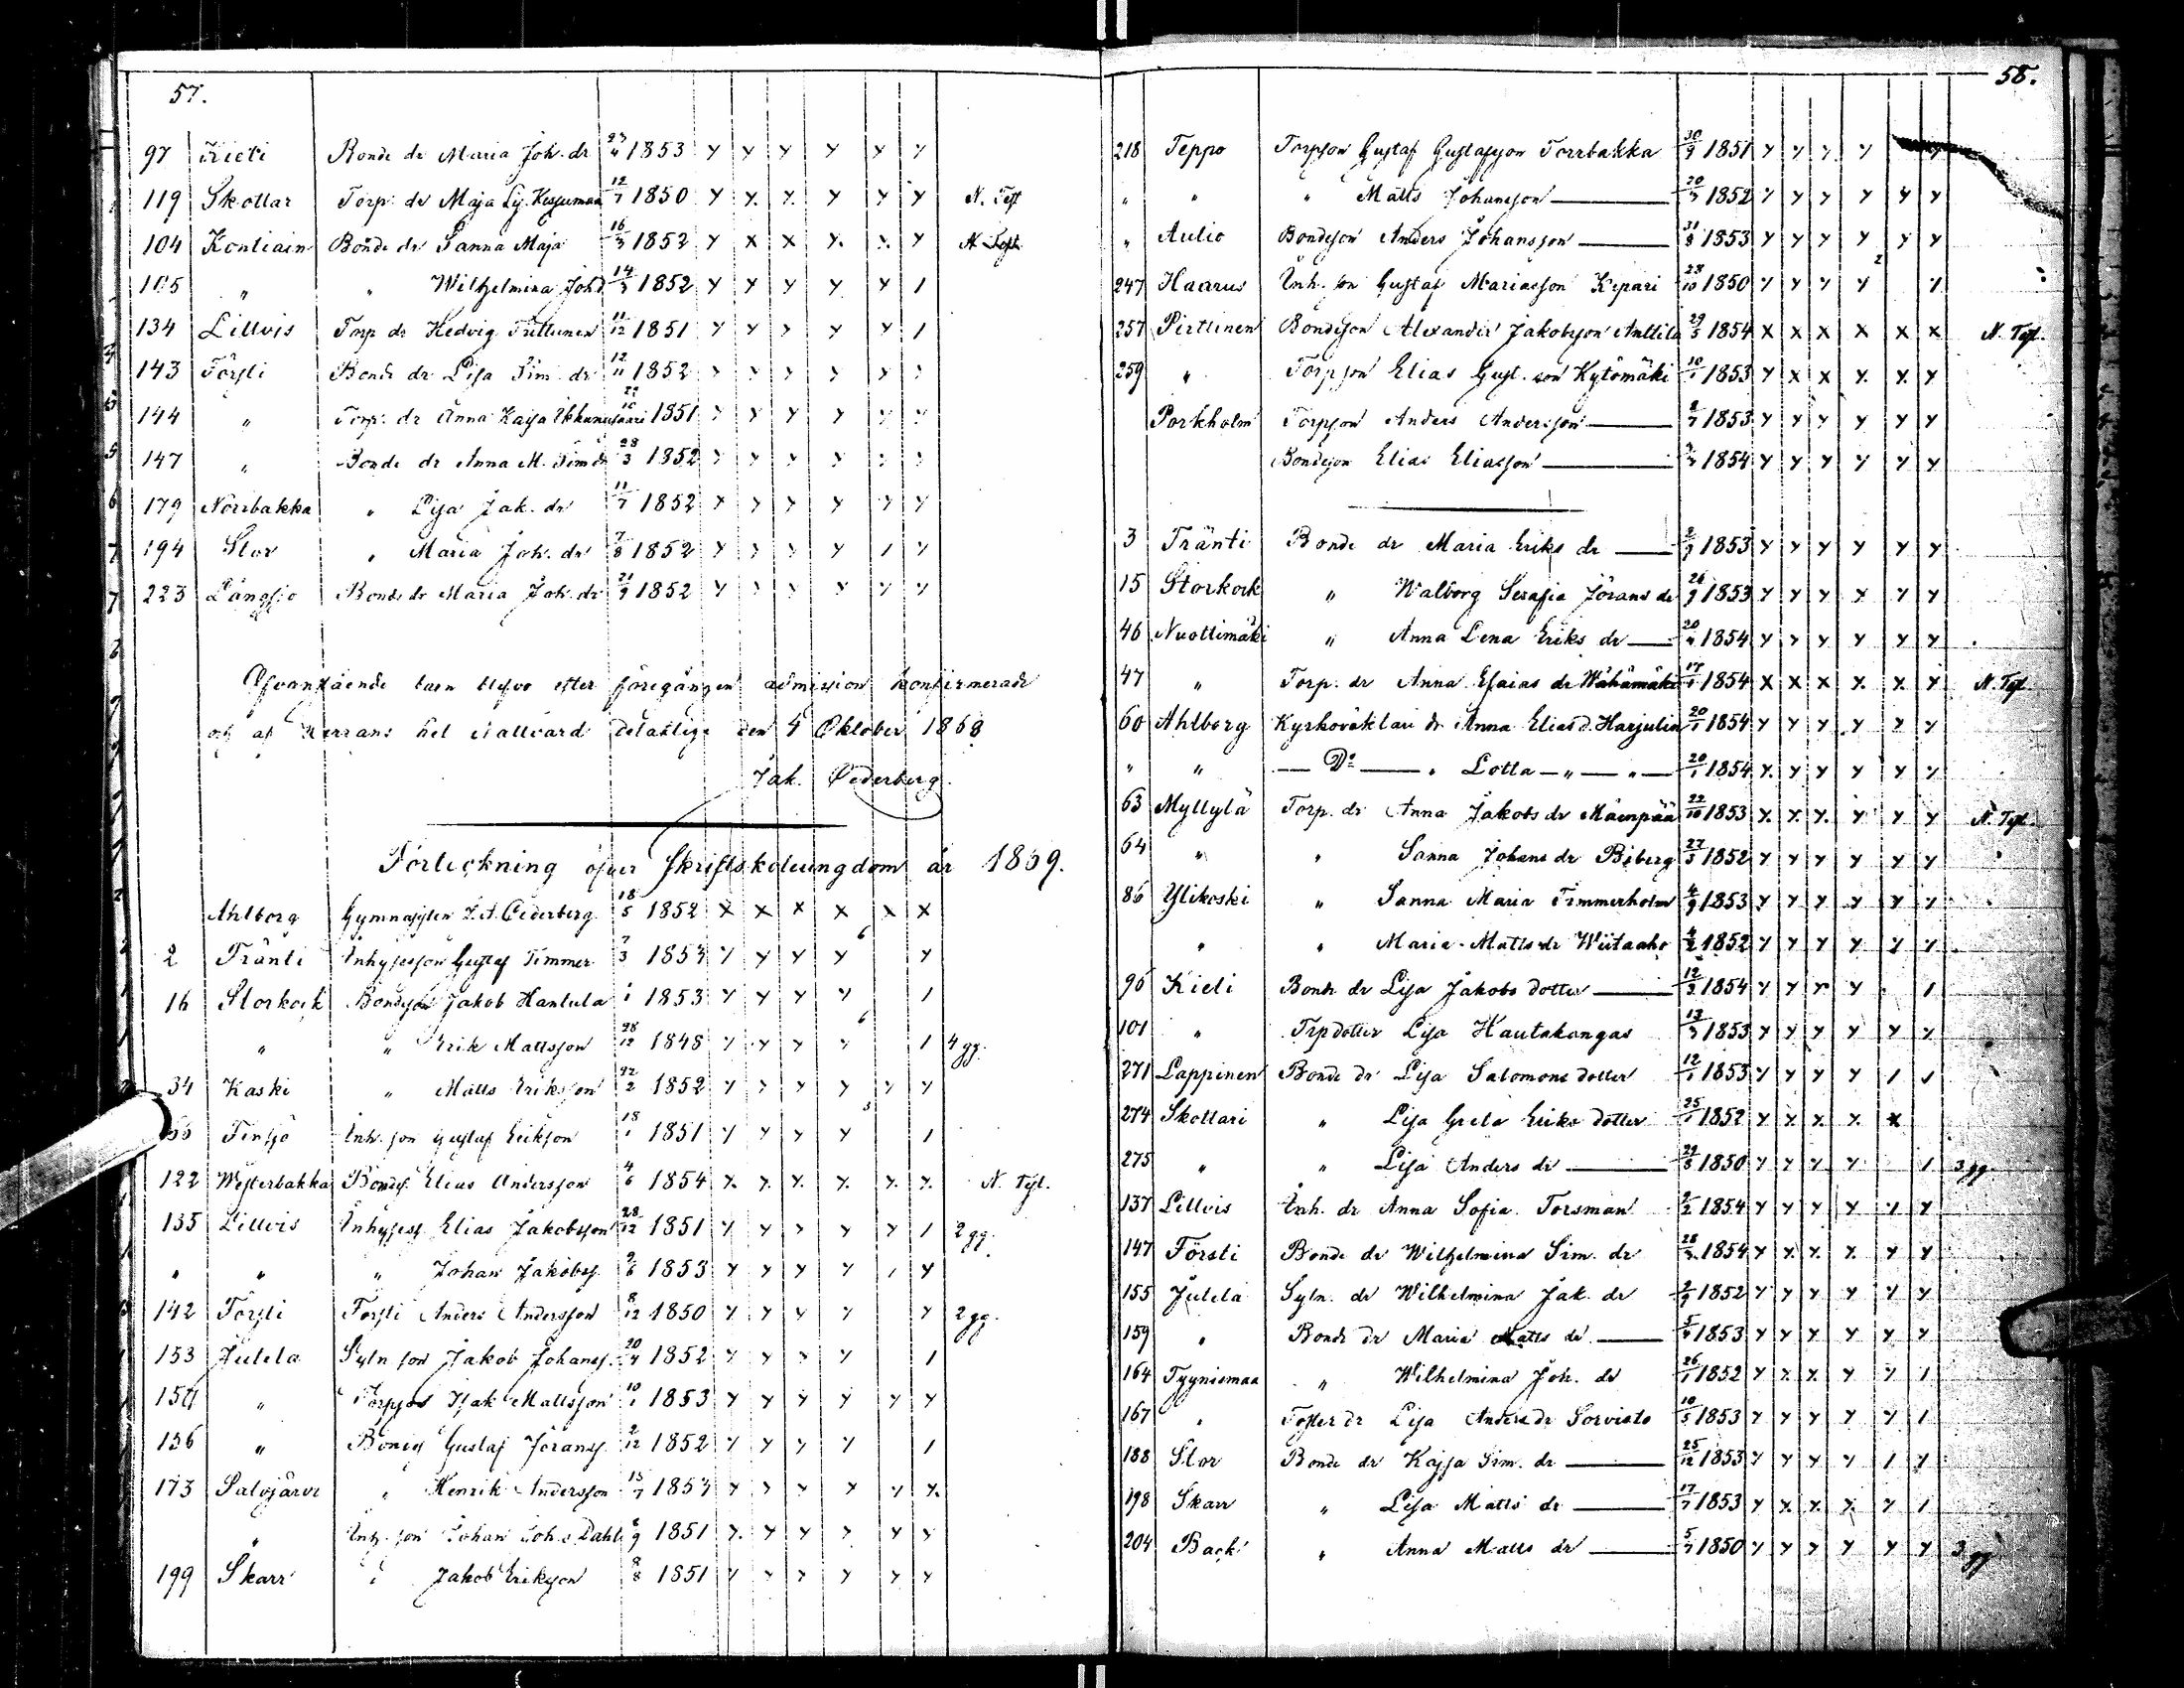 57.
97 Kieti Bonde dr Maria Joh. dr 23/4 1853 y y y y y y
119 Skottar Torp. dr Maja Lis. 12/7 1850 y y y y y y N. Test
104 Kontiain Bonde dr Sanna Maja 16/3 1852 y x x y y y N. Test
105 " " Wilhelmina Joh. d. 14/3 1852 y y y y y 1
134 Lillvis Torp dr Hedvig Tuttunen 11/12 1851 y y y y y 1
143 Försti Bonde dr Lisa Sim. dr 12/11 1852 y y y y y y
144 " Torp. dr Anna Kajsa 1851 y y y y y y
147 " Bonde dr Anna M. Sim dr 28/3 1852 y y y y y y
179 Norrbakka " Lisa Jak. dr 11/7 1852 y y y y y y
194 Stor " Maria Joh. dr 7/8 1852 y y y y 1 y
223 Långsjö Bonde dr Maria Joh. dr 21/9 1852 y y y y y y
Ofvanstående barn blefvo efter föregången admission konfirmerade
och af Herrans hel. Nattvard delaktige den 4 Oktober 1868
Jak. Cederberg.
Förteckning öfver Skriftskoleungdom år 1869.
Ahlborg Gymnasisten J. A. Cederberg 18/5 1852 x x x x x x
2 Tränti Inhysesson Gustaf Timmer 7/3 1853 y y y y 6 y
16 Storkock Bondeson Jakob Hantula 1/1 1853 y y y y 1
" " Erik Mattsson 28/12 1848 y y y y 6 1 4 gg.
34 Kaski " Matts Eriksson 22/2 1852 y y y y y y
Tensjö Inh. son Gustaf Eriksson 18/1 1851 y y y y 3 1
122 Westerbakka Bondes. Elias Andersson 4/6 1854 y y y y y y N. Test.
135 Lillvis Inhysess. Elias Jakobsson 28/12 1851 y y y y y 1 2 gg.
" " " Johan Jakobss. 9/6 1853 y y y y 1 y
142 Försti Försti Anders Andersson 8/12 1850 y y y y y 2 gg.
153 Julela Sytn. son Jakob Johanss. 20/4 1852 y y y y 1
154 " Torpps Isak Mattsson 10/1 1853 y y y y y y
156 " Bondes Gustaf Joranss. 2/12 1852 y y y y 1
173 Salojärvi " Henrik Andersson 15/7 1853 y y y y y y
" Inh. son Johan Joh. s. Dahl 6/9 1851 y y y y y y
199 Skarr " Jakob Eriksson 8/8 1851 y y y y y y
58.
218 Teppo Torpson Gustaf Gustafsson Torrbakka 30/9 1851 y y y y y
" " " Matts Johansson 20/3 1852 y y y y y y
" Aulio Bondeson Anders Johansson 31/8 1853 y y y y y y
247 Haarus Inh. son Gustaf Mariasson Kipari 28/10 1850 y y y y 2 y
257 Pirttinen Bondeson Alexander Jakobsson Anttila 29/5 1854 x x x x x x N. Test.
259 " Torpson Elias Gust. son Kytömäki 10/1 1853 y x x y y y
Porkholm Torpson Anders Andersson 1853 y y y y y y
Bondeson Elias Eliasson 1854 y y y y y y
3 Tränti Bonde dr Maria Eriks dr 2/9 1853 y y y y y y
15 Storkock " Walborg Serafia Jörans dr 26/9 1853 y y y y y y
46 Nuottimäki " Anna Lena Eriks dr 20/4 1854 y y y y y y
47 " Torp. dr Anna Esaias dr Wähämäki 17/1 1854 x x x y y y N. Test.
60 Ahlborg Kyrkoväktare dr Anna Elias d. Harjulin 20/1 1854 y y y y y y
" " Do " Lotta " " 20/1 1854 y y y y y y
63 Myllylä Torp. dr Anna Jakobs dr Mäenpää 22/10 1853 y y y y y y N. Test.
64 " " Sanna Johans dr Biberg 27/3 1852 y y y y y y
86 Ylikoski " Sanna Maria Timmerholm 4/9 1853 y y y y y y
" " Maria Matts dr Wiitaaho 4/2 1852 y y y y y y
96 Kieti Bonde dr Lisa Jakobs dotter 12/3 1854 y y y y 1
101 " Trp dotter Lisa Hautakangas 13/3 1853 y y y y y y
271 Lappinen Bonde dr Lisa Salomons dotter 12/1 1853 y y y y 1 1
274 Skottari " Lisa Greta Eriks dotter 25/1 1852 y y y y x
275 " " Lisa Anders dr 29/8 1850 y y y y 1 3 gg.
137 Lillvis Inh. dr Anna Sofia Forsman 2/2 1854 y y y y y y
147 Försti Bonde dr Wilhelmina Sim. dr 28/3 1854 y y y y y y
155 Julela Sytn. dr Wilhelmina Jak. dr 2/9 1852 y y y y y y
159 " Bonde dr Maria Matts dr 1853 y y y y y y
164 Tyynismaa " Wilhelmina Joh. dr 26/1 1852 y y y y y 1
167 " Foster dr Lisa Anders dr Sorvisto 10/5 1853 y y y y y 1
188 Stor Bonde dr Kajsa Sim. dr 25/12 1853 y y y y 1 y
198 Skarr " Lisa Matts dr 17/7 1853 y y y y y 1
204 Back " Anna Matts dr 5/7 1850 y y y y y y 3 gg